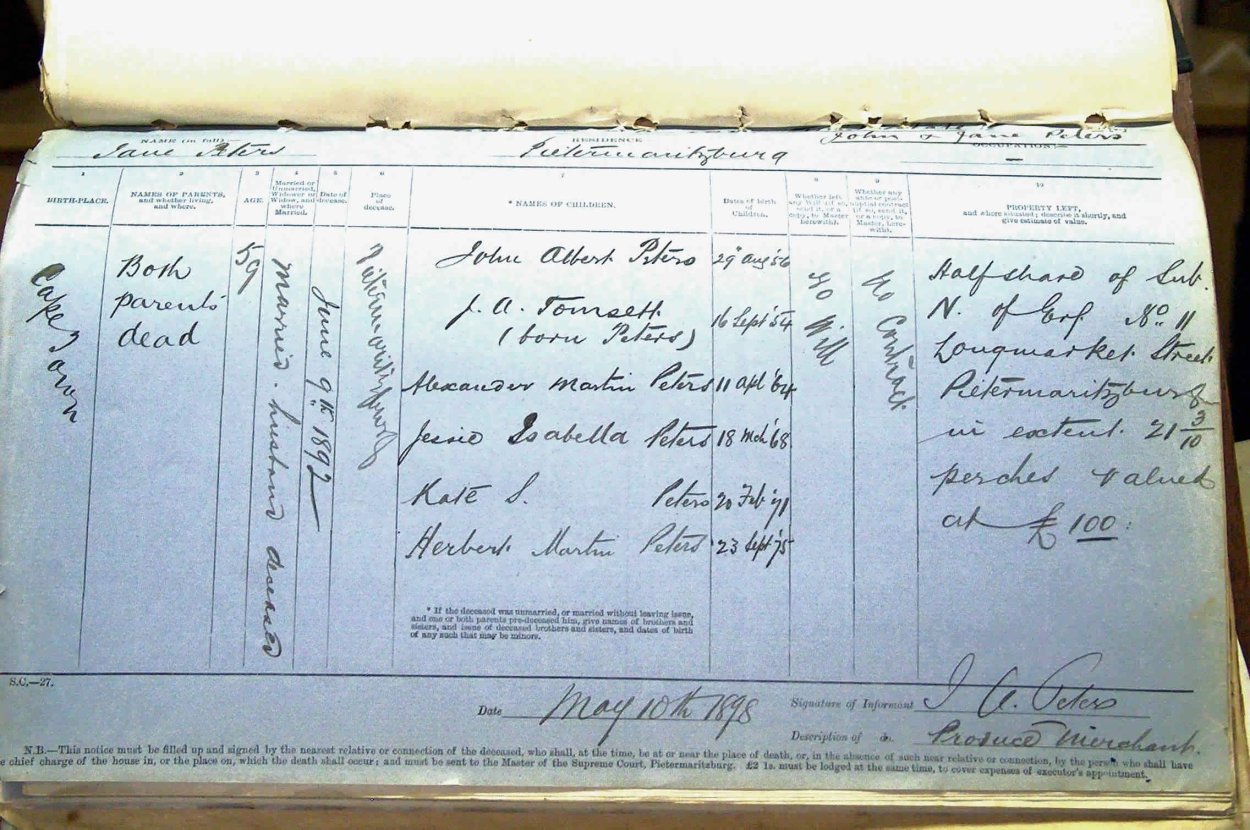 John & Jane Peters
NAME (in full) RESIDENCE OCCUPATION:—
Jane Peters Pietermaritzburg —
1 2 3 4 5 6 7 8 9 10
BIRTH-PLACE.
NAMES OF PARENTS,
and whether living,
and where.
AGE.
Married or
Unmarried,
Widower or
Widow, and
where
Married.
Date of
decease.
Place
of
decease.
* NAMES OF CHILDREN.
Dates of birth
of
Children.
Whether left
any Will (if so,
send it, or a
copy, to Master
herewith).
Whether any
ante or post-
nuptial contract
(if so, send it,
or a copy, to
Master, here-
with).
PROPERTY LEFT,
and where situated; describe it shortly, and
give estimate of value.
Cape Town
Both
parents
dead
59
Married. husband deceased
June 9th 1892
Pietermaritzburg
John Albert Peters 29" Aug '56
J. A. Tomsett 16 Sept '54
(born Peters)
Alexander Martin Peters 11 Apl '64
Jessie Isabella Peters 18 Mch '68
Kate S. Peters 20 Feb '71
Herbert Martin Peters 23 Sept '75
No Will
No Contract
Half share of Sub.
N. of Erf No 11
Longmarket Street
Pietermaritzburg
in extent 21 3/10
perches valued
at £100:
* If the deceased was unmarried, or married without leaving issue,
and one or both parents pre-deceased him, give names of brothers and
sisters, and issue of deceased brothers and sisters, and dates of birth
of any such that may be minors.
S.C.—27.
Date May 10th 1898 Signature of Informant J A. Peters
Description of do. Produce Merchant.
N.B.—This notice must be filled up and signed by the nearest relative or connection of the deceased, who shall, at the time, be at or near the place of death, or, in the absence of such near relative or connection, by the person who shall have
e chief charge of the house in, or the place on, which the death shall occur; and must be sent to the Master of the Supreme Court, Pietermaritzburg. £2 1s. must be lodged at the same time, to cover expenses of executor's appointment.